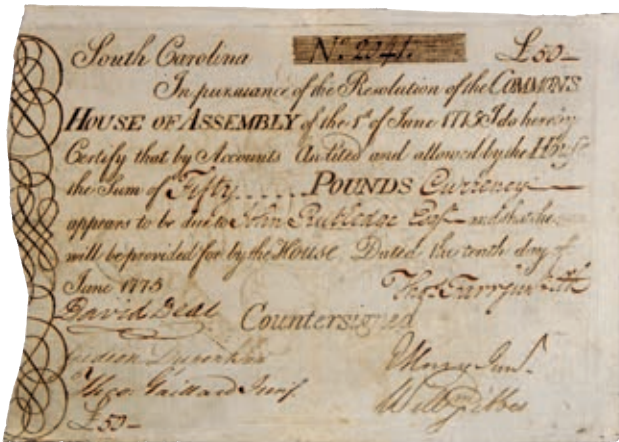 South Carolina No. 2041. £50-
In pursuance of the Resolution of the COMMONS
HOUSE OF ASSEMBLY of the 1st of June 1775 I do hereby
Certify that by Accounts Audited and allowed by the House
the Sum of Fifty POUNDS Currency
appears to be due to John Rutledge Esqr and that the same
will be provided for by the House. Dated the tenth day of
June 1775 Thos. Farr junr
David Deas Countersigned
Gideon Dupont
Theo. Gaillard Junr.
Will Gibbes
£50-